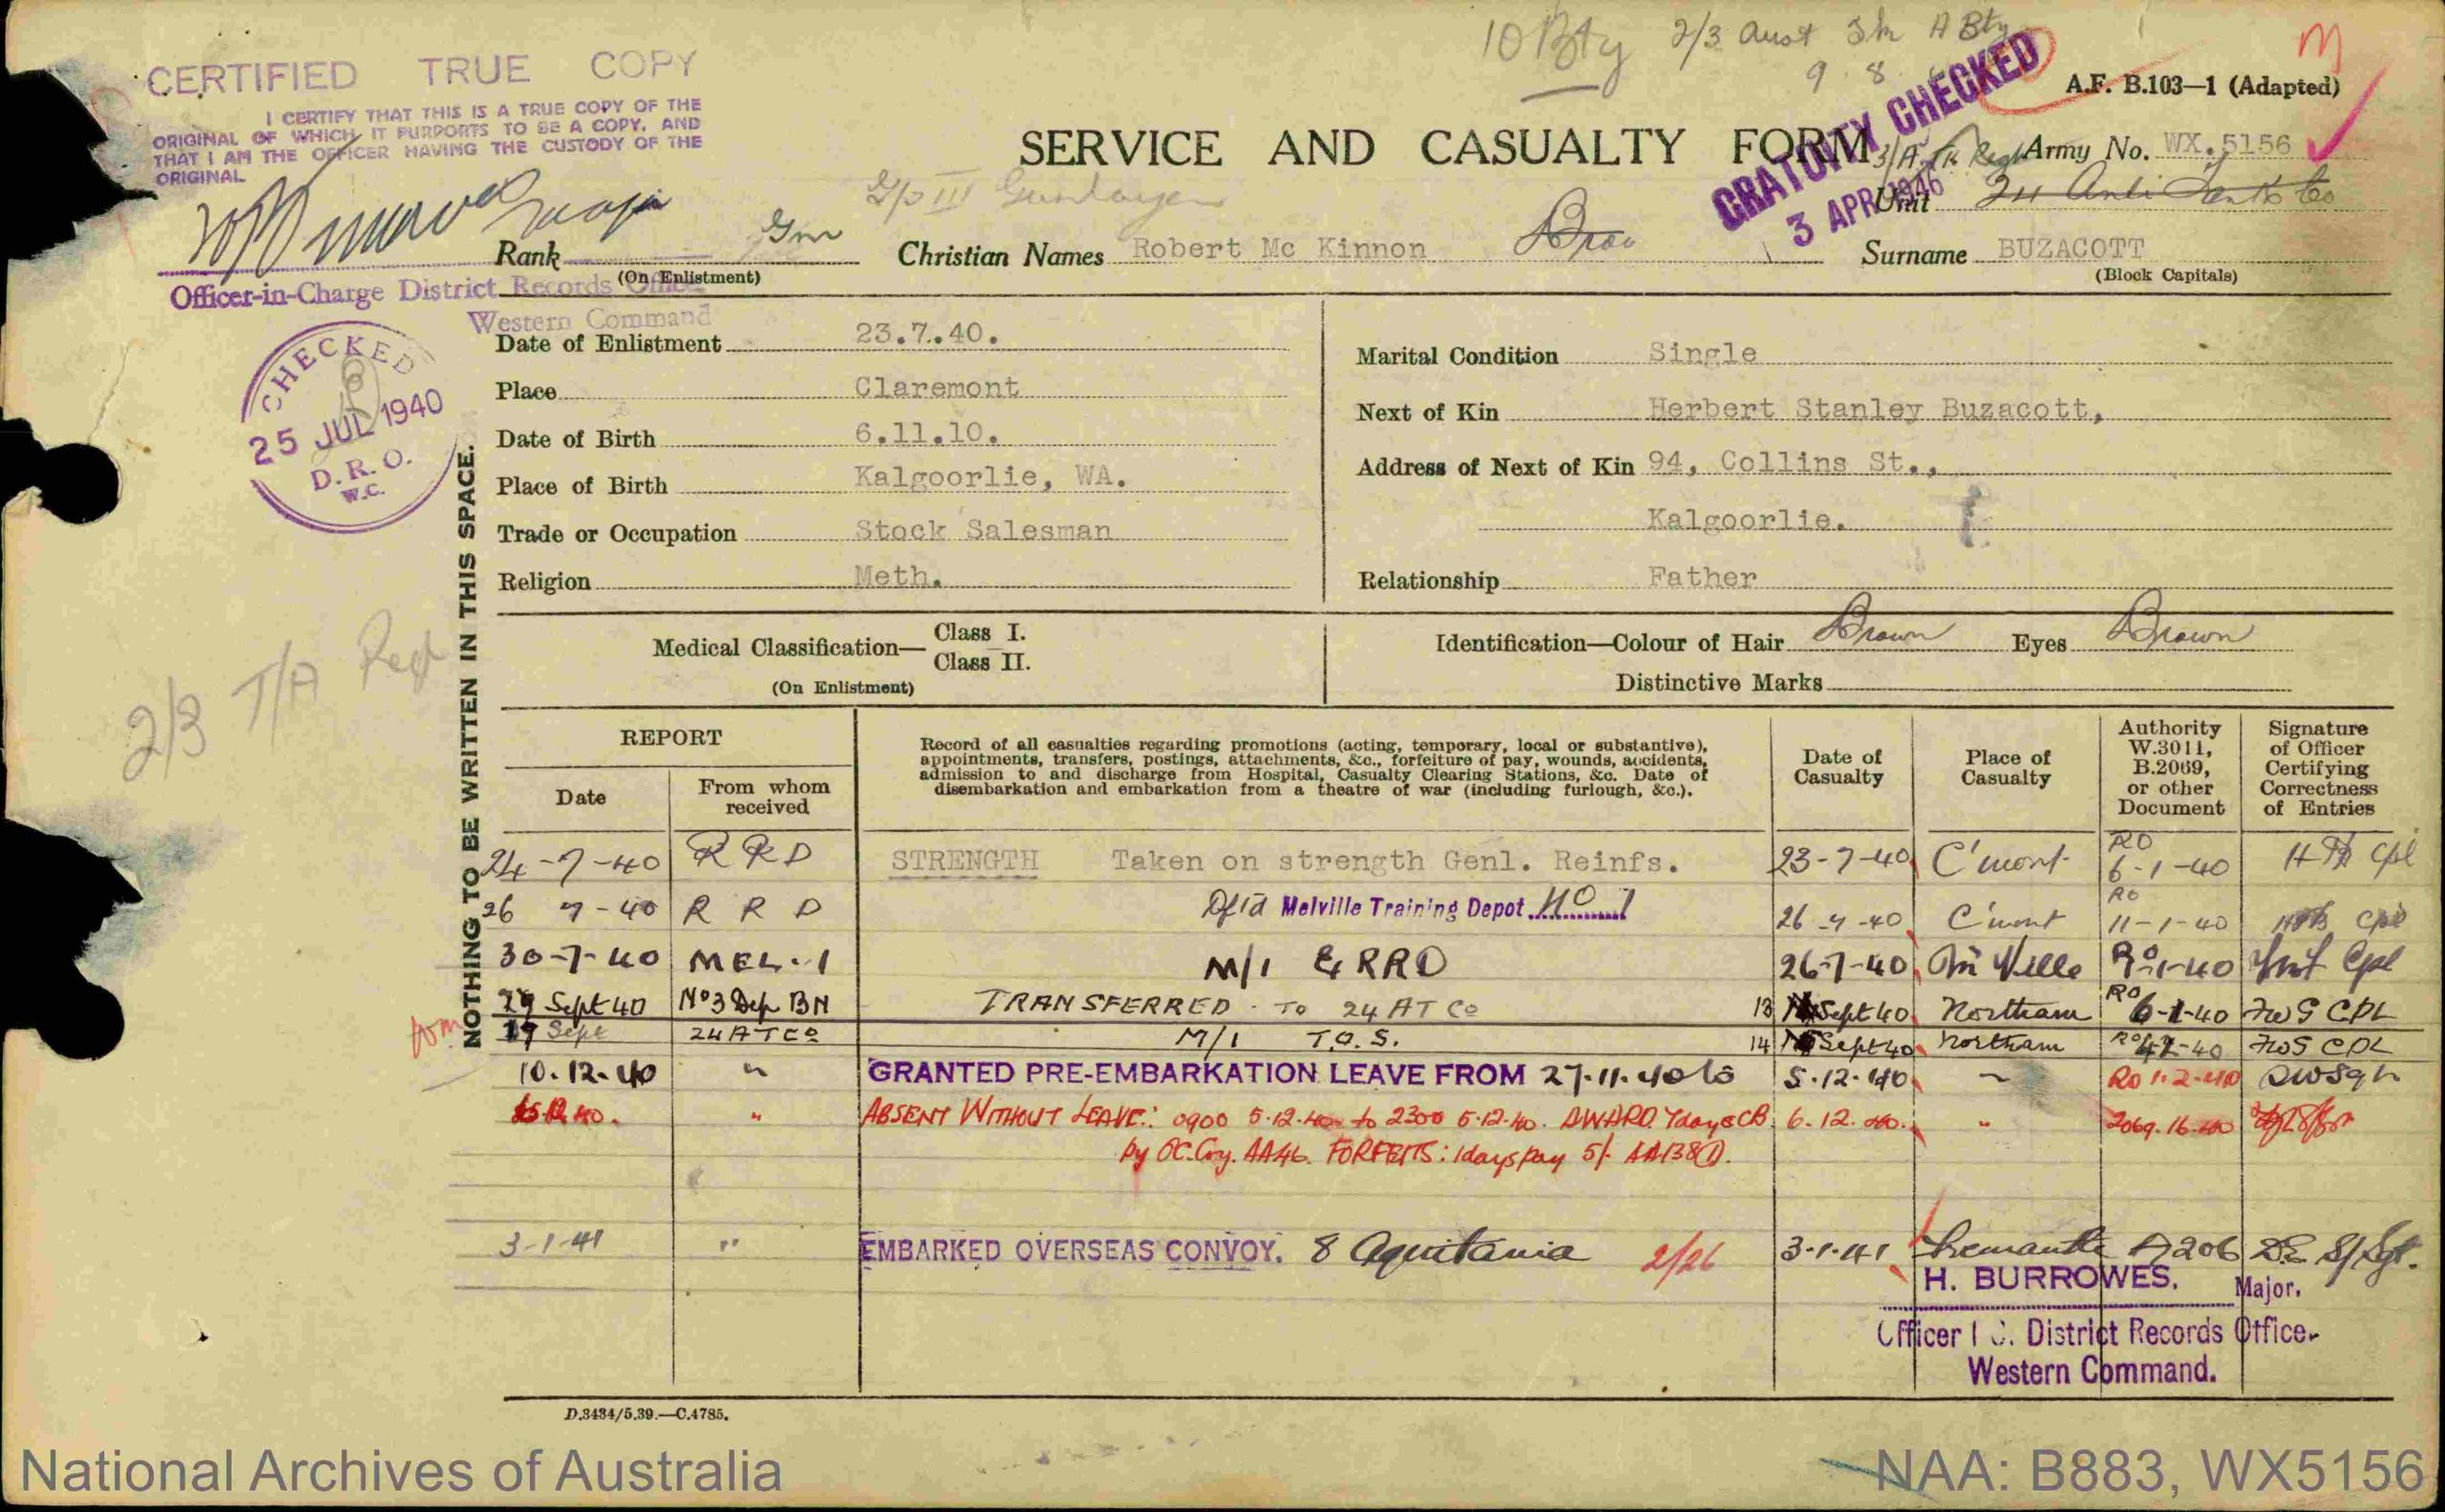 10 Bty 2/3 Aust
9 8
M
CERTIFIED TRUE COPY
I CERTIFY THAT THIS IS A TRUE COPY OF THE
ORIGINAL OF WHICH IT PURPORTS TO BE A COPY. AND
THAT I AM THE OFFICER HAVING THE CUSTODY OF THE
ORIGINAL
GRATUITY CHECKED
3 APR 1946
A.F. B.103—1 (Adapted)
SERVICE AND CASUALTY FORM
Army No. WX.5156
Unit 24 Anti Tank Co
Rank Gnr
(On Enlistment)
Christian Names Robert Mc Kinnon
Surname BUZACOTT
(Block Capitals)
Officer-in-Charge District Records Office
Western Command
CHECKED
25 JUL 1940
D.R.O.
W.C.
Date of Enlistment 23.7.40.
Place Claremont
Date of Birth 6.11.10.
Place of Birth Kalgoorlie, WA.
Trade or Occupation Stock Salesman
Religion Meth.
Marital Condition Single
Next of Kin Herbert Stanley Buzacott,
Address of Next of Kin 94, Collins St.,
Kalgoorlie.
Relationship Father
NOTHING TO BE WRITTEN IN THIS SPACE.
2/3 T/A Regt
Medical Classification— Class I.
Class II.
(On Enlistment)
Identification—Colour of Hair Brown Eyes Brown
Distinctive Marks
REPORT
Date
From whom received
Record of all casualties regarding promotions (acting, temporary, local or substantive),
appointments, transfers, postings, attachments, &c., forfeiture of pay, wounds, accidents,
admission to and discharge from Hospital, Casualty Clearing Stations, &c. Date of
disembarkation and embarkation from a theatre of war (including furlough, &c.).
Date of Casualty
Place of Casualty
Authority W.3011, B.2069, or other Document
Signature of Officer Certifying Correctness of Entries
24-7-40 RRD STRENGTH Taken on strength Genl. Reinfs. 23-7-40 C'mont RO 6-1-40 Cpl
26 7-40 R R D Melville Training Depot NO 1 26-7-40 C'mont RO 11-1-40 Cpl
30-7-40 MEL-1 M/I RRD 26-7-40 M'Ville Cpl
Sept 40 No3 Dep BN TRANSFERRED - To 24 AT Co 13 Sept 40 Northam RO 6-1-40 FWS CPL
19 Sept 24 AT Co M/I T.O.S. 14 Sept 40 Northam RO FWS CPL
10.12.40 " GRANTED PRE-EMBARKATION LEAVE FROM 27.11.40 to 5.12.40 " RO 1-2-40
" ABSENT WITHOUT LEAVE: 0900 5.12.40 to 2300 5.12.40. AWARD 7 days CB 6.12.40. " 2069.16.40
by OC. Coy. AA46. FORFEITS: 1 days pay 5/- AA138(1).
3-1-41 " EMBARKED OVERSEAS CONVOY. 8 Aquitania 2/26 3.1.41 Fremantle A206 S/Sgt.
H. BURROWES. Major.
Officer I C. District Records Office
Western Command.
D.3434/5.39.—C.4785.
National Archives of Australia
NAA: B883, WX5156